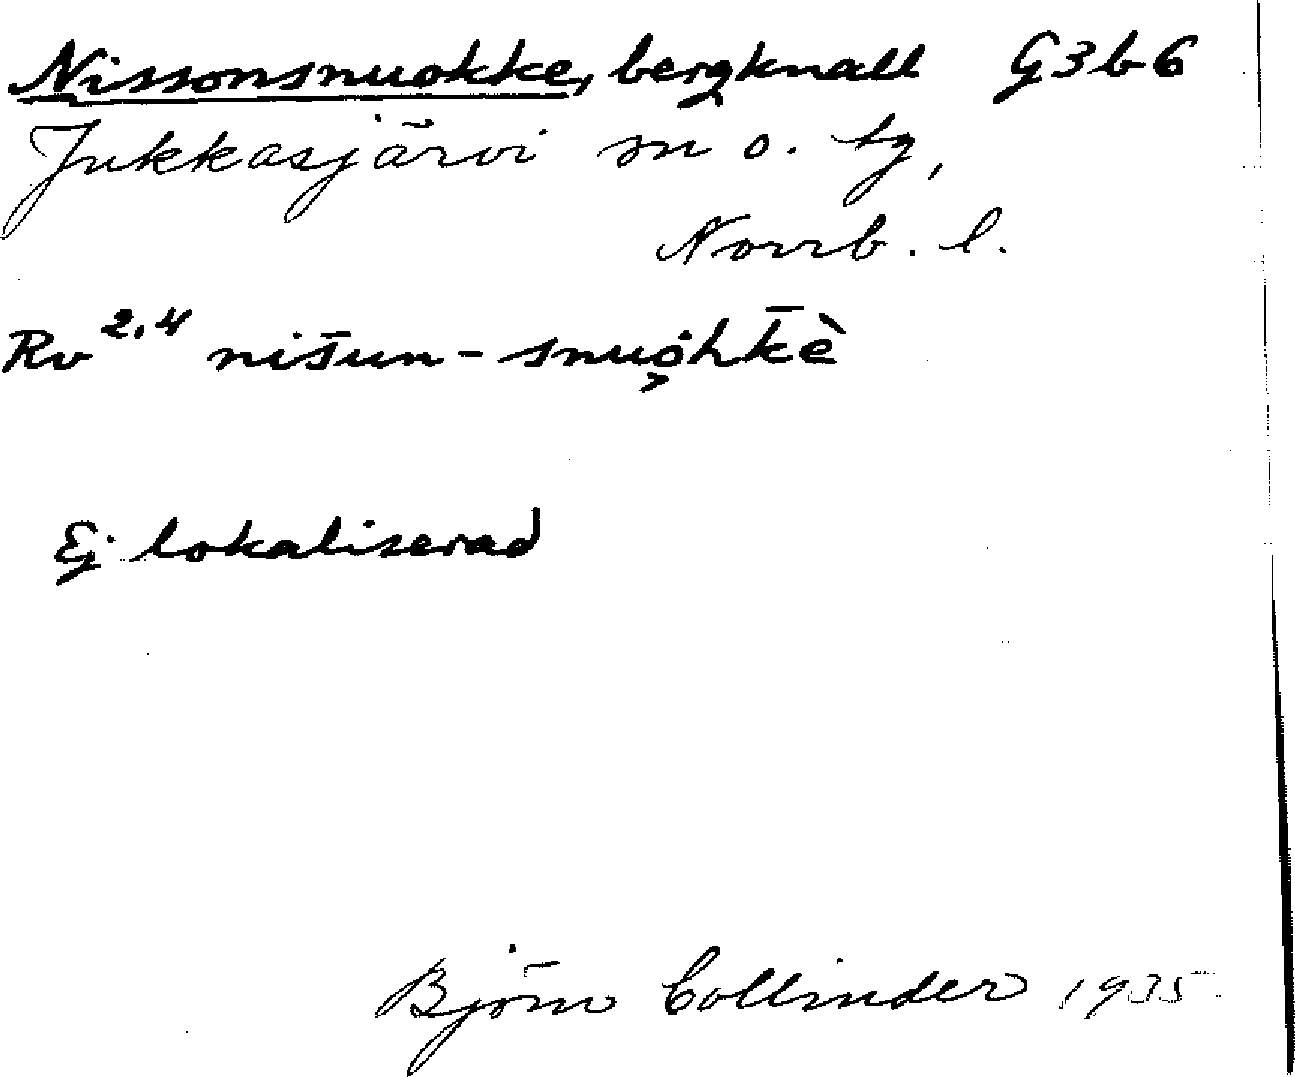 Nissonsnuokke, bergknall G3b6
Jukkasjärvi sn o. tg,
Norrb. l.
Rv 2.4 nišun-snuo̭hk̄è
Ej lokaliserad
Björn Collinder 1935.